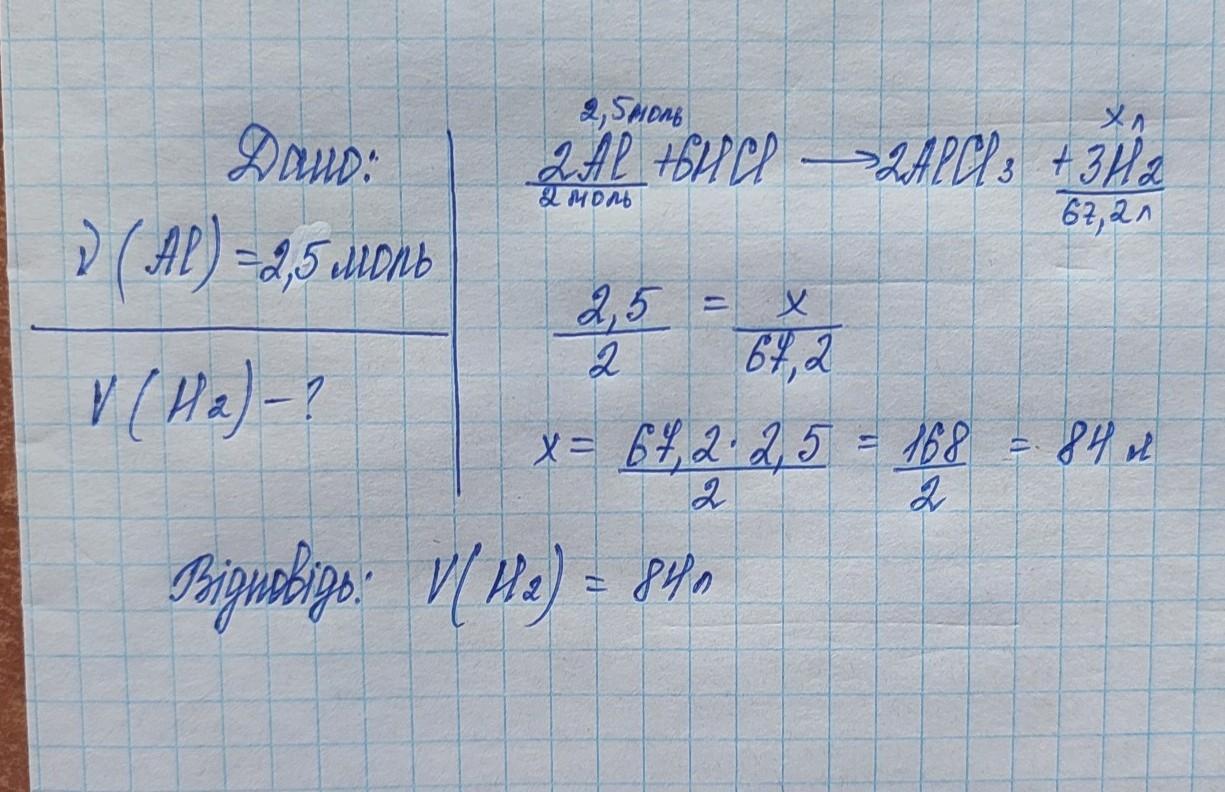 Дано:
ν(Al)=2,5 моль
V(H2)-?
2,5 моль
x л
2Al+6HCl→2AlCl3+3H2
2 моль
67,2 л
2,5/2 = x/67,2
x = 67,2·2,5/2 = 168/2 = 84 л
Відповідь: V(H2) = 84 л